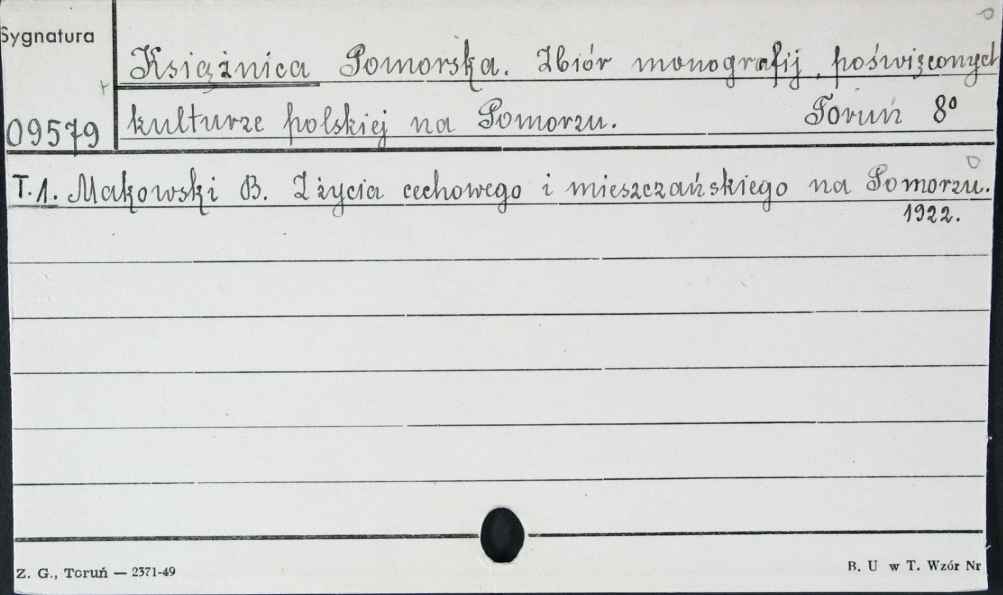 Sygnatura
Książnica Pomorska. Zbiór monografij, poświęconych
09579 kulturze polskiej na Pomorzu. Toruń 8°
T.1. Makowski B. Z życia cechowego i mieszczańskiego na Pomorzu.
1922.
Z. G., Toruń — 2371-49 B. U w T. Wzór Nr